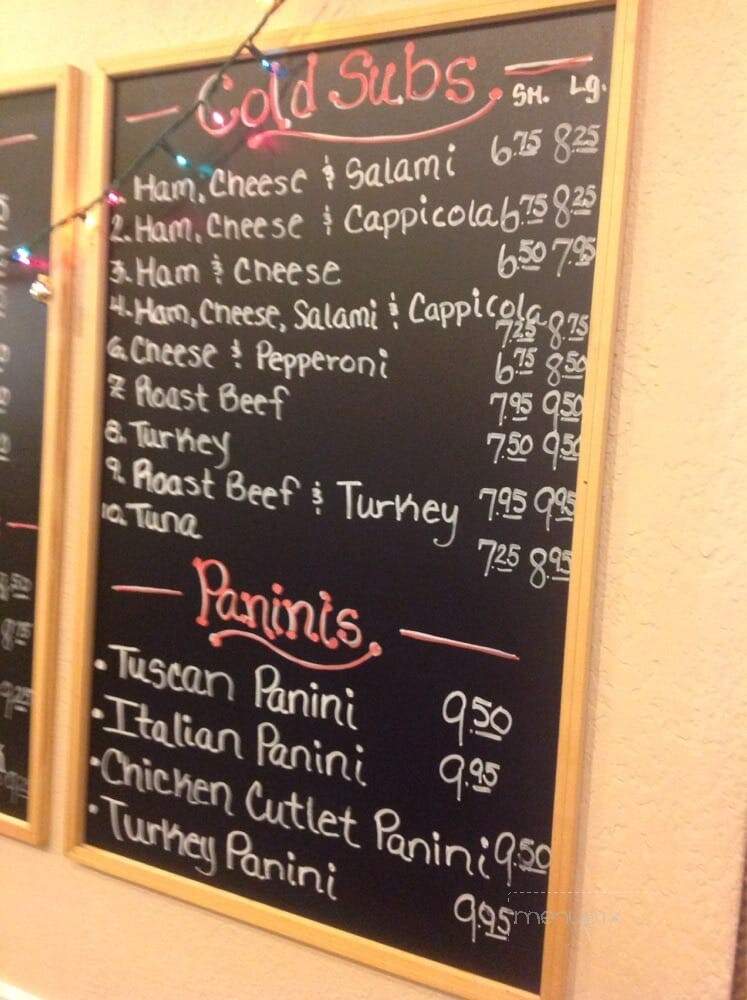 Cold Subs. Sm. Lg.
1. Ham, Cheese & Salami 6.75 8.25
2. Ham, Cheese & Cappicola 6.75 8.25
3. Ham & Cheese 6.50 7.95
4. Ham, Cheese, Salami & Cappicola 7.25 8.75
6. Cheese & Pepperoni 6.75 8.50
7. Roast Beef 7.95 9.50
8. Turkey 7.50 9.50
9. Roast Beef & Turkey 7.95 9.95
10. Tuna 7.25 8.95
Paninis.
• Tuscan Panini 9.50
• Italian Panini 9.95
• Chicken Cutlet Panini 9.50
• Turkey Panini 9.95
8.50
8.75
9.25